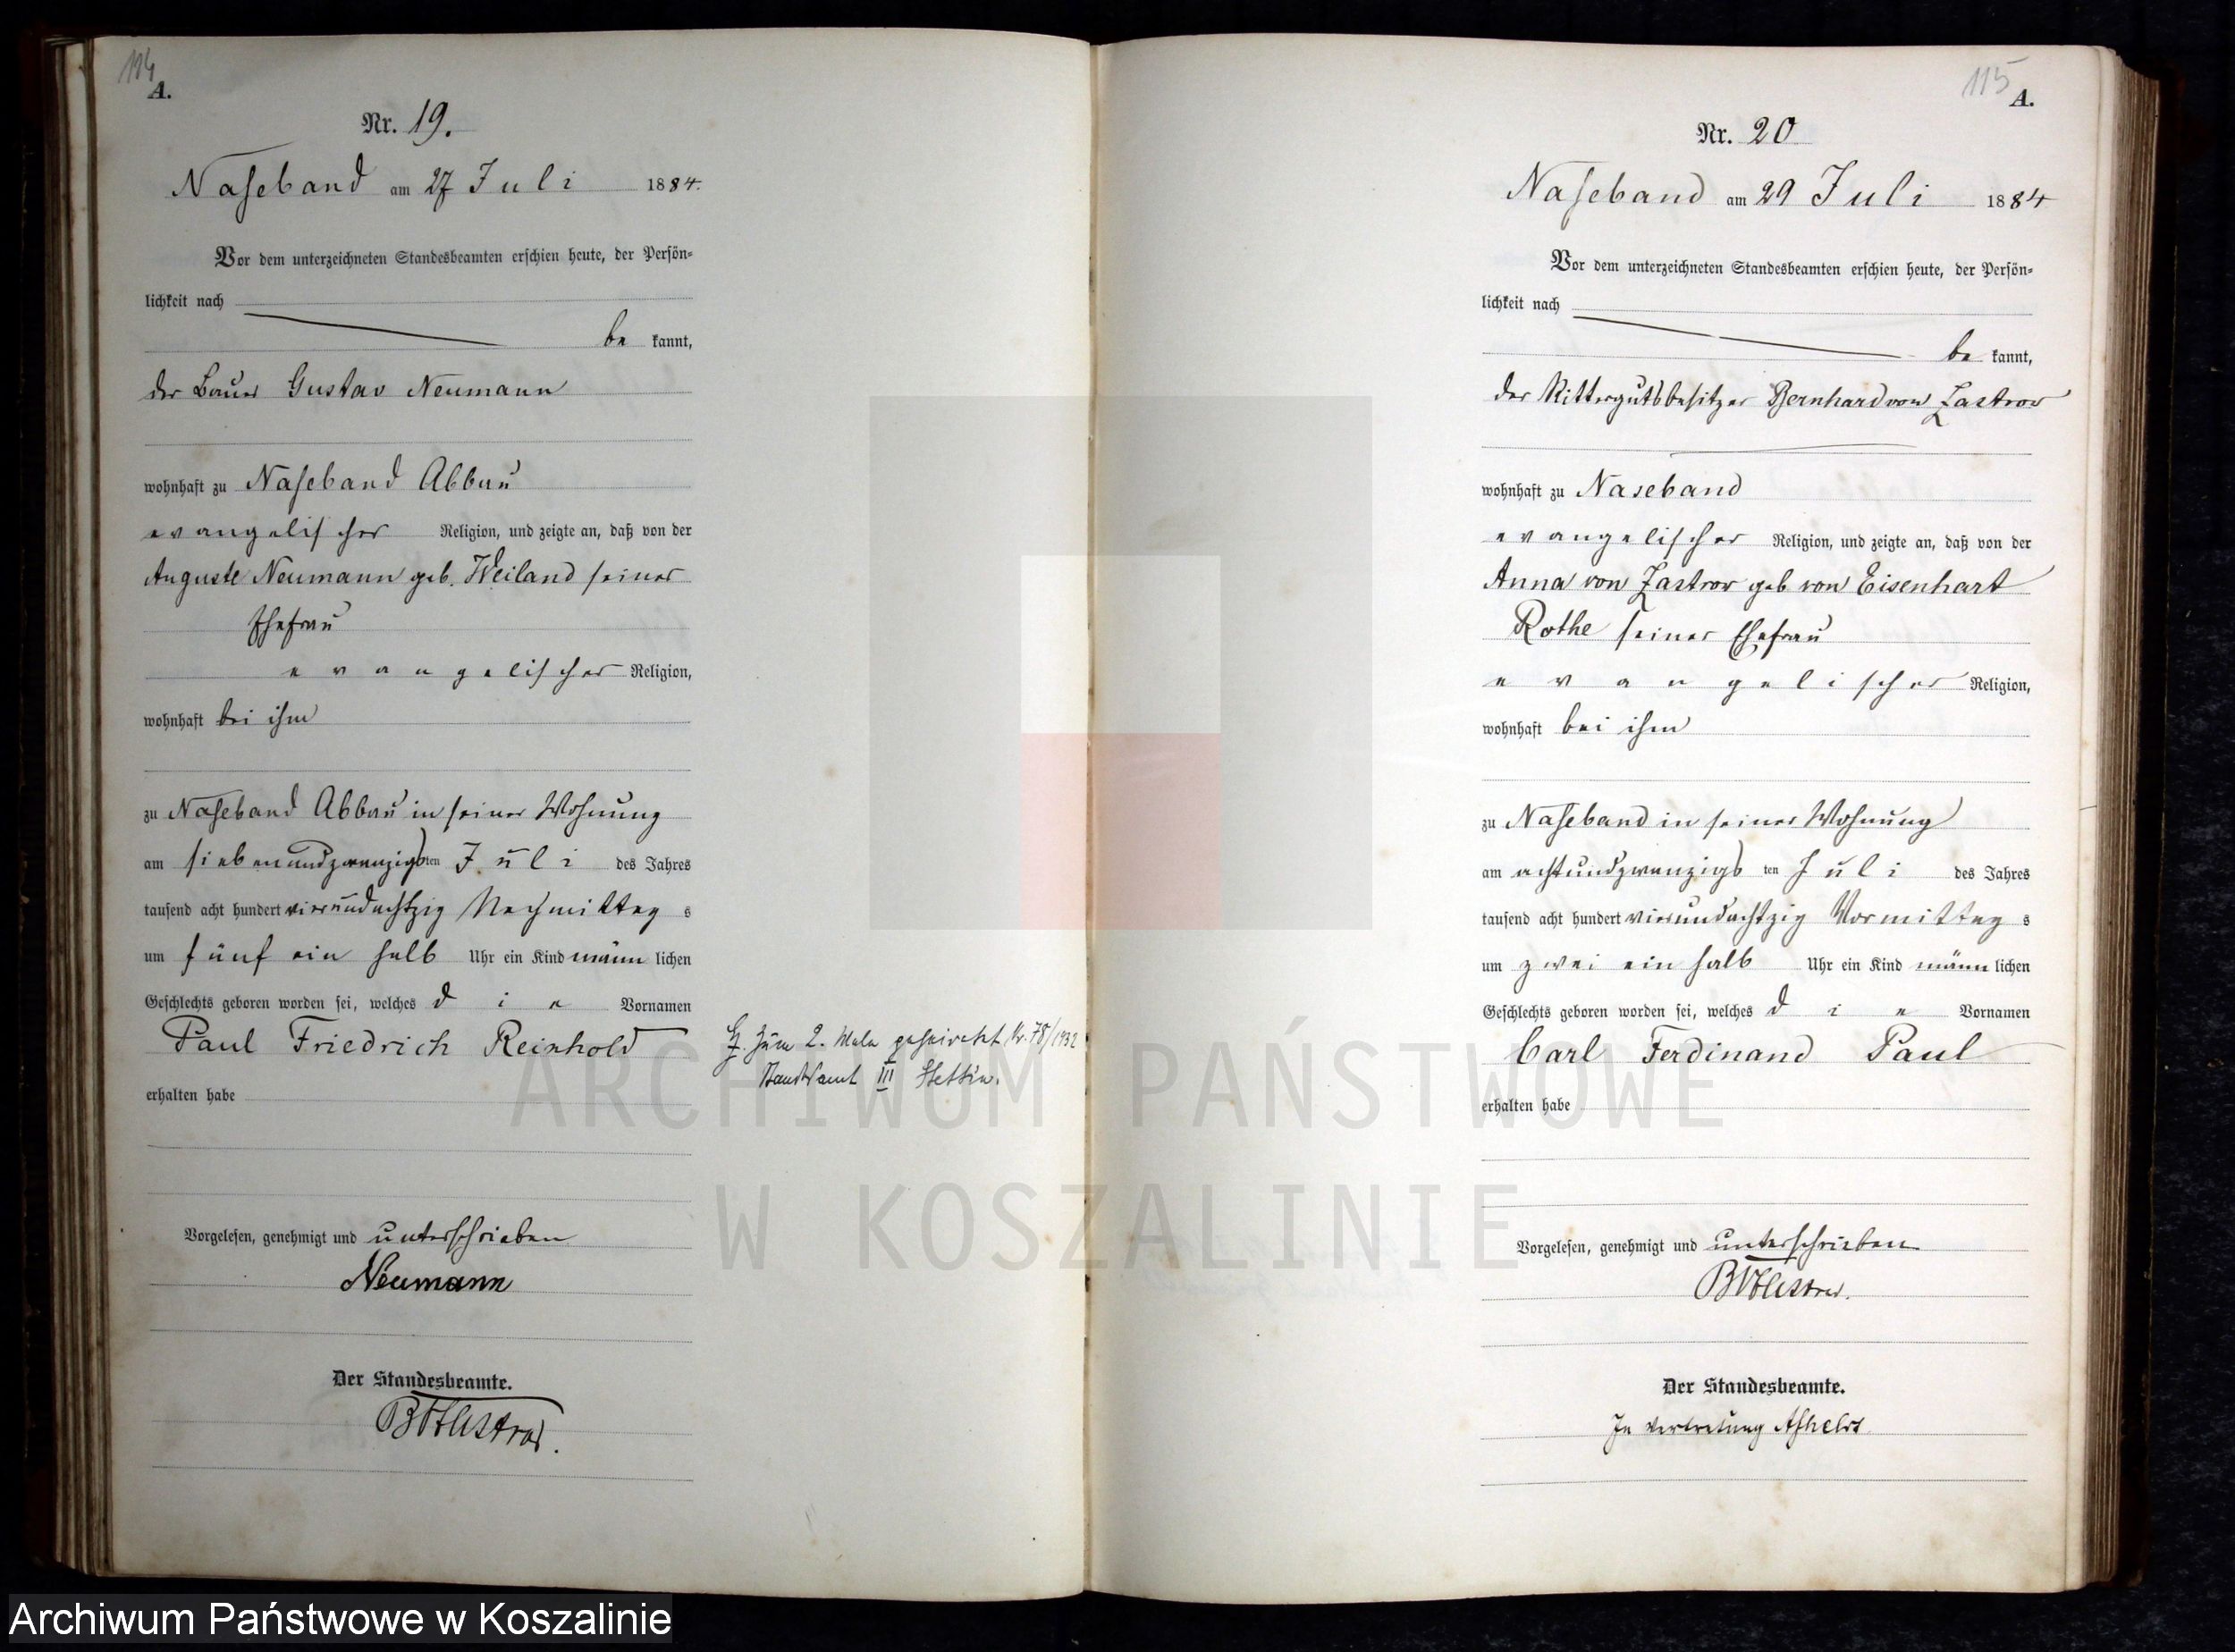 114
A.
Nr. 19.
Naseband am 27 Juli 1884.
Vor dem unterzeichneten Standesbeamten erschien heute, der Persön-
lichkeit nach
be kannt,
der Bauer Gustav Neumann
wohnhaft zu Naseband Abbau
evangelischer Religion, und zeigte an, daß von der
Auguste Neumann geb. Weiland seiner
Ehefrau
evangelischer Religion,
wohnhaft bei ihm
zu Naseband Abbau in seiner Wohnung
am siebenundzwanzigsten Juli des Jahres
tausend acht hundert vierundachtzig Nachmittags
um fünf ein halb Uhr ein Kind männlichen
Geschlechts geboren worden sei, welches die Vornamen
Paul Friedrich Reinhold
erhalten habe
Vorgelesen, genehmigt und unterschrieben
Neumann
Der Standesbeamte.
BvZastrow.
zum 2. Male geheiratet Nr. 78/1932
Standesamt III Stettin.
115
A.
Nr. 20
Naseband am 29 Juli 1884
Vor dem unterzeichneten Standesbeamten erschien heute, der Persön-
lichkeit nach
be kannt,
der Rittergutsbesitzer Bernhard von Zastrow
wohnhaft zu Naseband
evangelischer Religion, und zeigte an, daß von der
Anna von Zastrow geb von Eisenhart
Rothe seiner Ehefrau
evangelischer Religion,
wohnhaft bei ihm
zu Naseband in seiner Wohnung
am achtundzwanzigsten Juli des Jahres
tausend acht hundert vierundachtzig Vormittags
um zwei ein halb Uhr ein Kind männlichen
Geschlechts geboren worden sei, welches die Vornamen
Carl Ferdinand Paul
erhalten habe
Vorgelesen, genehmigt und unterschrieben
BvZastrow.
Der Standesbeamte.
In Vertretung
ARCHIWUM PAŃSTWOWE
W KOSZALINIE
Archiwum Państwowe w Koszalinie